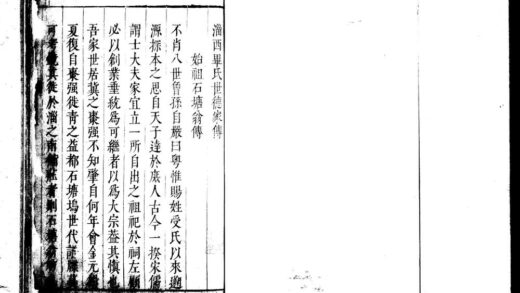 淄西畢氏世德家傳
始祖石塘翁傳
不肖八世魯孫自嚴曰粤惟賜姓受氏以來遡
源探本之思自天子達於庶人古今一揆宋儒
謂士大夫家宜立一所自出之祖祀於祠左顧
必以創業垂統爲可繼者以爲大宗葢其慎也
吾家世居冀之棗强不知肇自何年會金元
夏復自棗强徙青之益都石塘塢世代
可考 其徙於淄之南 者則石塘翁